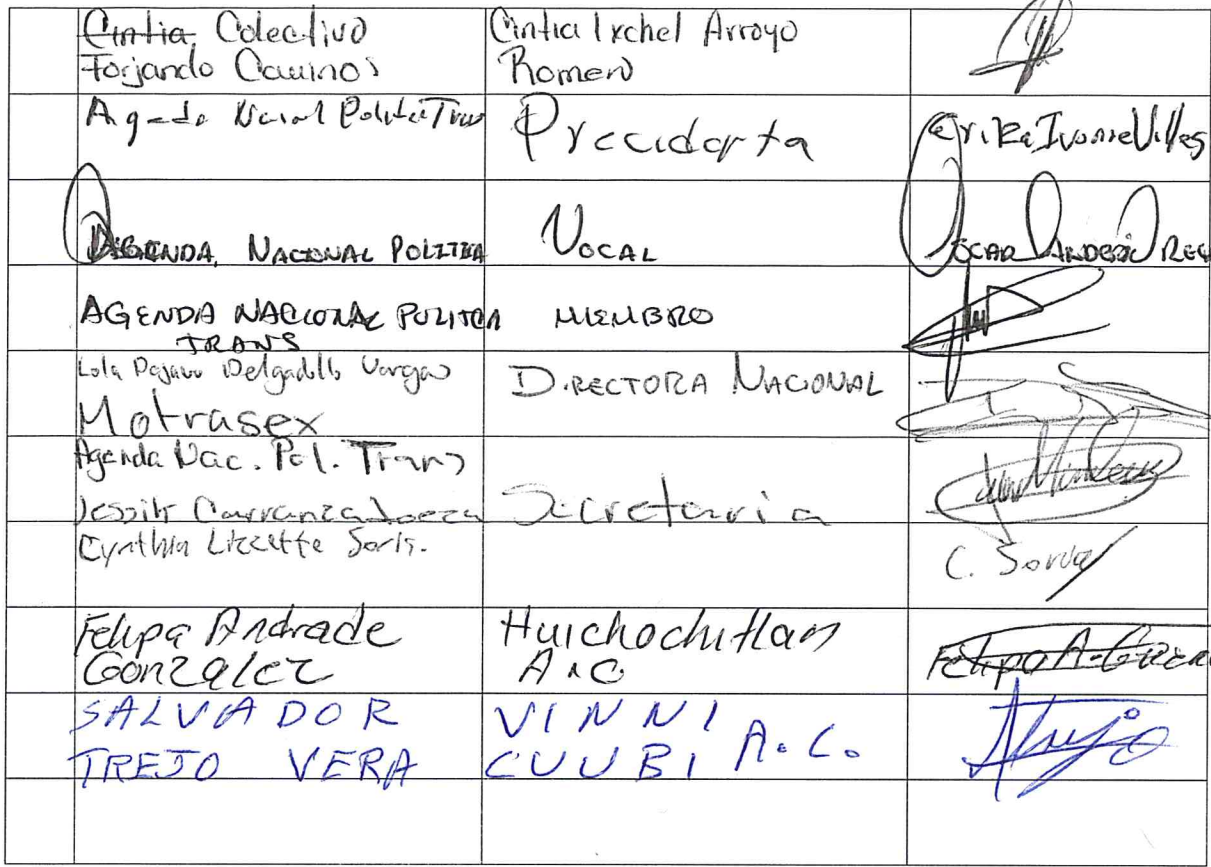 Cintia Colectivo
Forjando Caminos
Cintia Ixchel Arroyo
Romero
Politica Trans
Erika Ivonne Villegas
AGENDA NACIONAL POLITICA
VOCAL
OSCAR
AGENDA NACIONAL POLITICA
TRANS
MIEMBRO
Lola Delgadillo Vargas
Motrasex
DIRECTORA NACIONAL
Agenda Nac. Pol. Trans
Carranza
Secretaria
Cynthia Lizzette
C.
Felipa Andrade
Gonzalez
Huichochitlan
A.C
Felipa A.
SALVADOR
TREJO VERA
VINNI
CUUBI A.C.